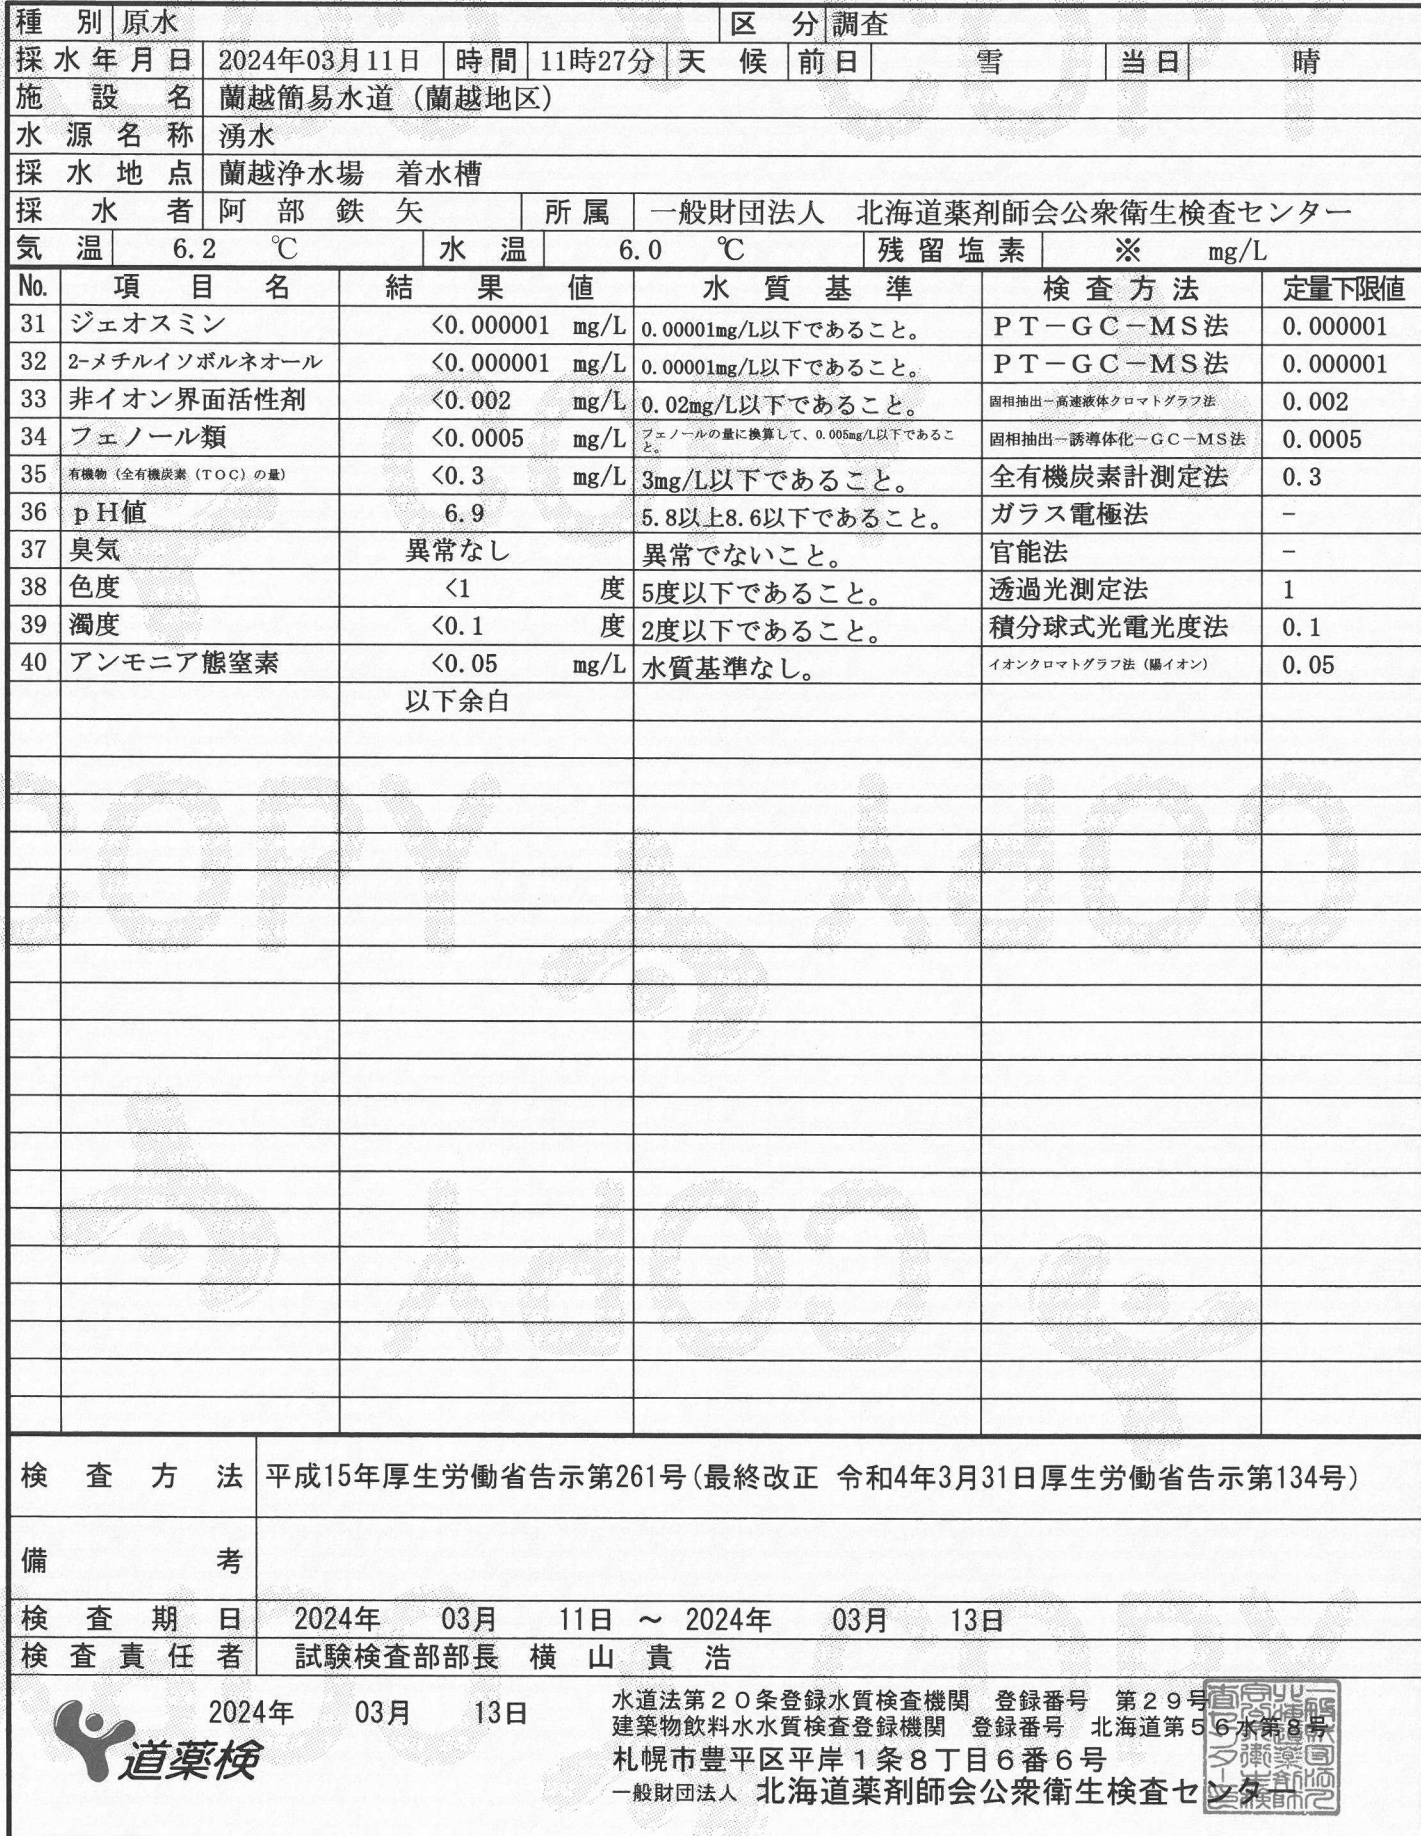 種 別 原水 区 分 調査
採水年月日 2024年03月11日 時間 11時27分 天 候 前日 雪 当日 晴
施 設 名 蘭越簡易水道（蘭越地区）
水源名称 湧水
採水地点 蘭越浄水場 着水槽
採 水 者 阿 部 鉄 矢 所属 一般財団法人 北海道薬剤師会公衆衛生検査センター
気 温 6.2 ℃ 水 温 6.0 ℃ 残留塩素 ※ mg/L
No. 項 目 名 結 果 値 水 質 基 準 検査方法 定量下限値
31 ジェオスミン <0.000001 mg/L 0.00001mg/L以下であること。 ＰＴ－ＧＣ－ＭＳ法 0.000001
32 2-メチルイソボルネオール <0.000001 mg/L 0.00001mg/L以下であること。 ＰＴ－ＧＣ－ＭＳ法 0.000001
33 非イオン界面活性剤 <0.002 mg/L 0.02mg/L以下であること。 固相抽出－高速液体クロマトグラフ法 0.002
34 フェノール類 <0.0005 mg/L フェノールの量に換算して、0.005mg/L以下であること。 固相抽出－誘導体化－ＧＣ－ＭＳ法 0.0005
35 有機物（全有機炭素（ＴＯＣ）の量） <0.3 mg/L 3mg/L以下であること。 全有機炭素計測定法 0.3
36 ｐＨ値 6.9 5.8以上8.6以下であること。 ガラス電極法 －
37 臭気 異常なし 異常でないこと。 官能法 －
38 色度 <1 度 5度以下であること。 透過光測定法 1
39 濁度 <0.1 度 2度以下であること。 積分球式光電光度法 0.1
40 アンモニア態窒素 <0.05 mg/L 水質基準なし。 イオンクロマトグラフ法（陽イオン） 0.05
以下余白
COPY COPY
COPY
検査方法 平成15年厚生労働省告示第261号(最終改正 令和4年3月31日厚生労働省告示第134号)
備 考
検査期日 2024年 03月 11日 ～ 2024年 03月 13日
検査責任者 試験検査部部長 横 山 貴 浩
2024年 03月 13日
道薬検
水道法第２０条登録水質検査機関 登録番号 第２９号
建築物飲料水水質検査登録機関 登録番号 北海道第５６水第８号
札幌市豊平区平岸１条８丁目６番６号
一般財団法人 北海道薬剤師会公衆衛生検査センター